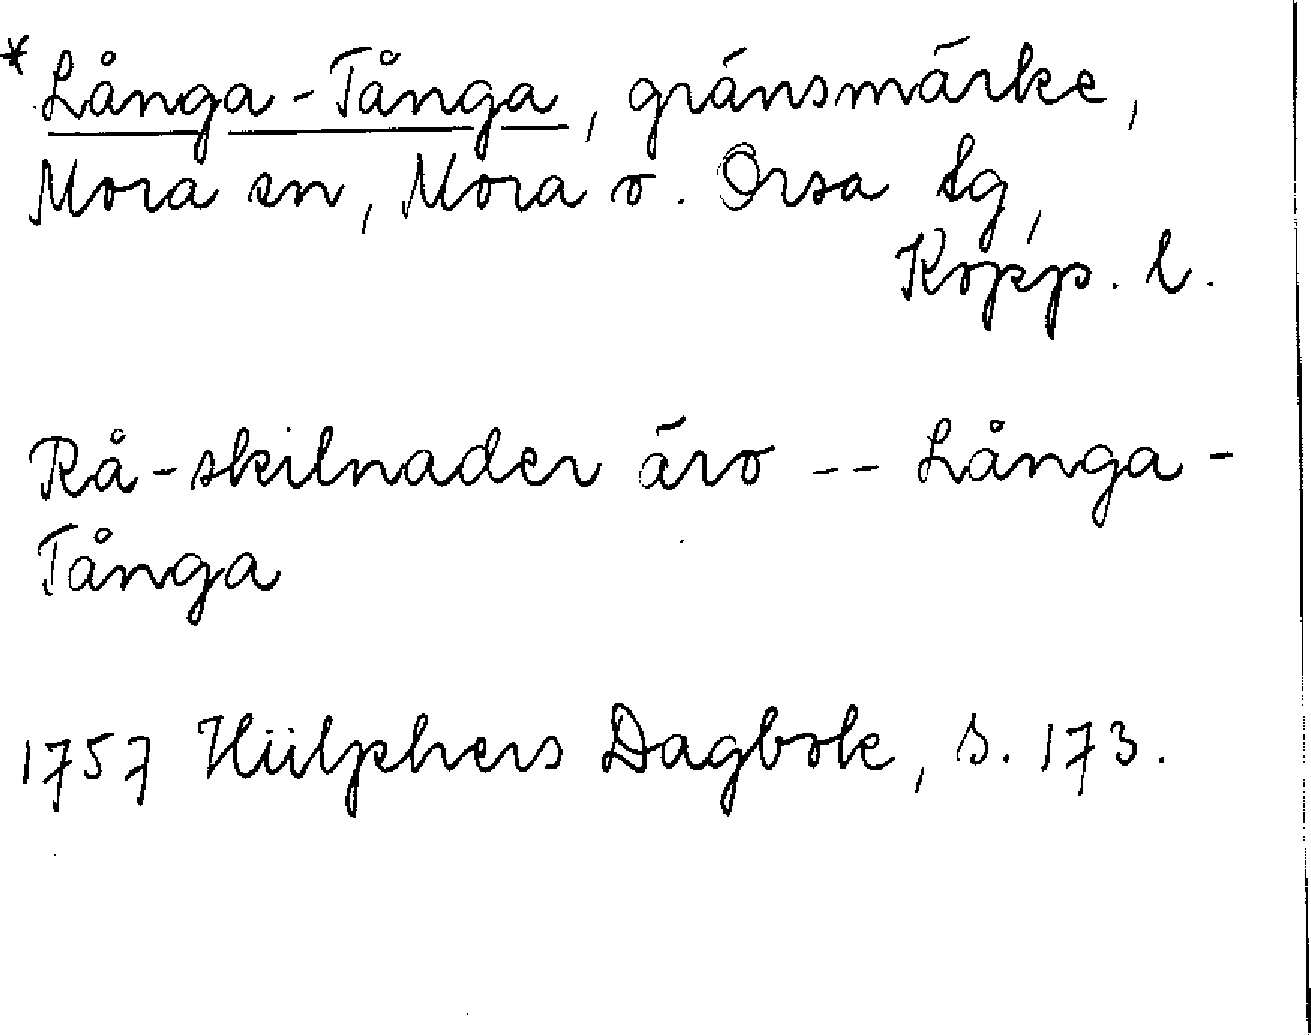 * Långa-Tånga, gränsmärke,
Mora sn, Mora o. Orsa tg,
Kopp. l.
Rå-skilnader äro -- Långa-
Tånga
1757 Hülphers Dagbok, s. 173.